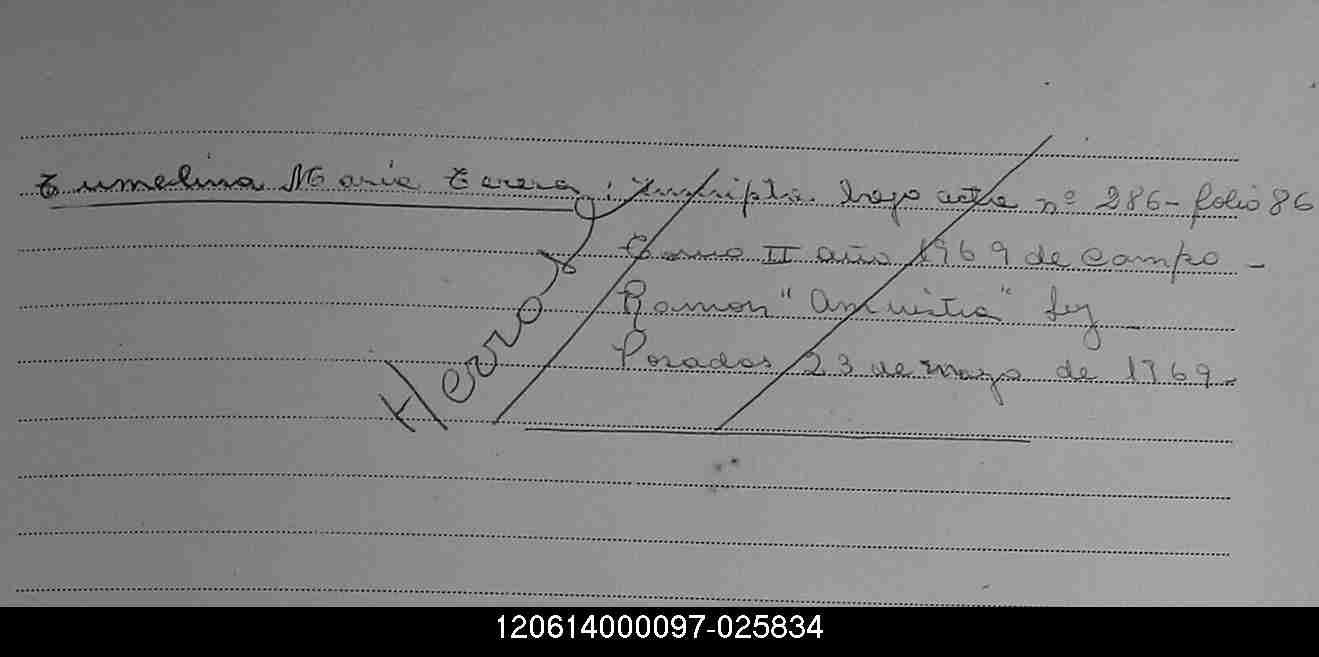 Tumelina Maria Teresa, : Inscripta bajo acta nº 286 - folio 86
Tomo II año 1969 de campo -
Ramon "Amnistia" ley
Posadas 23 de mayo de 1969.
Herror
120614000097-025834